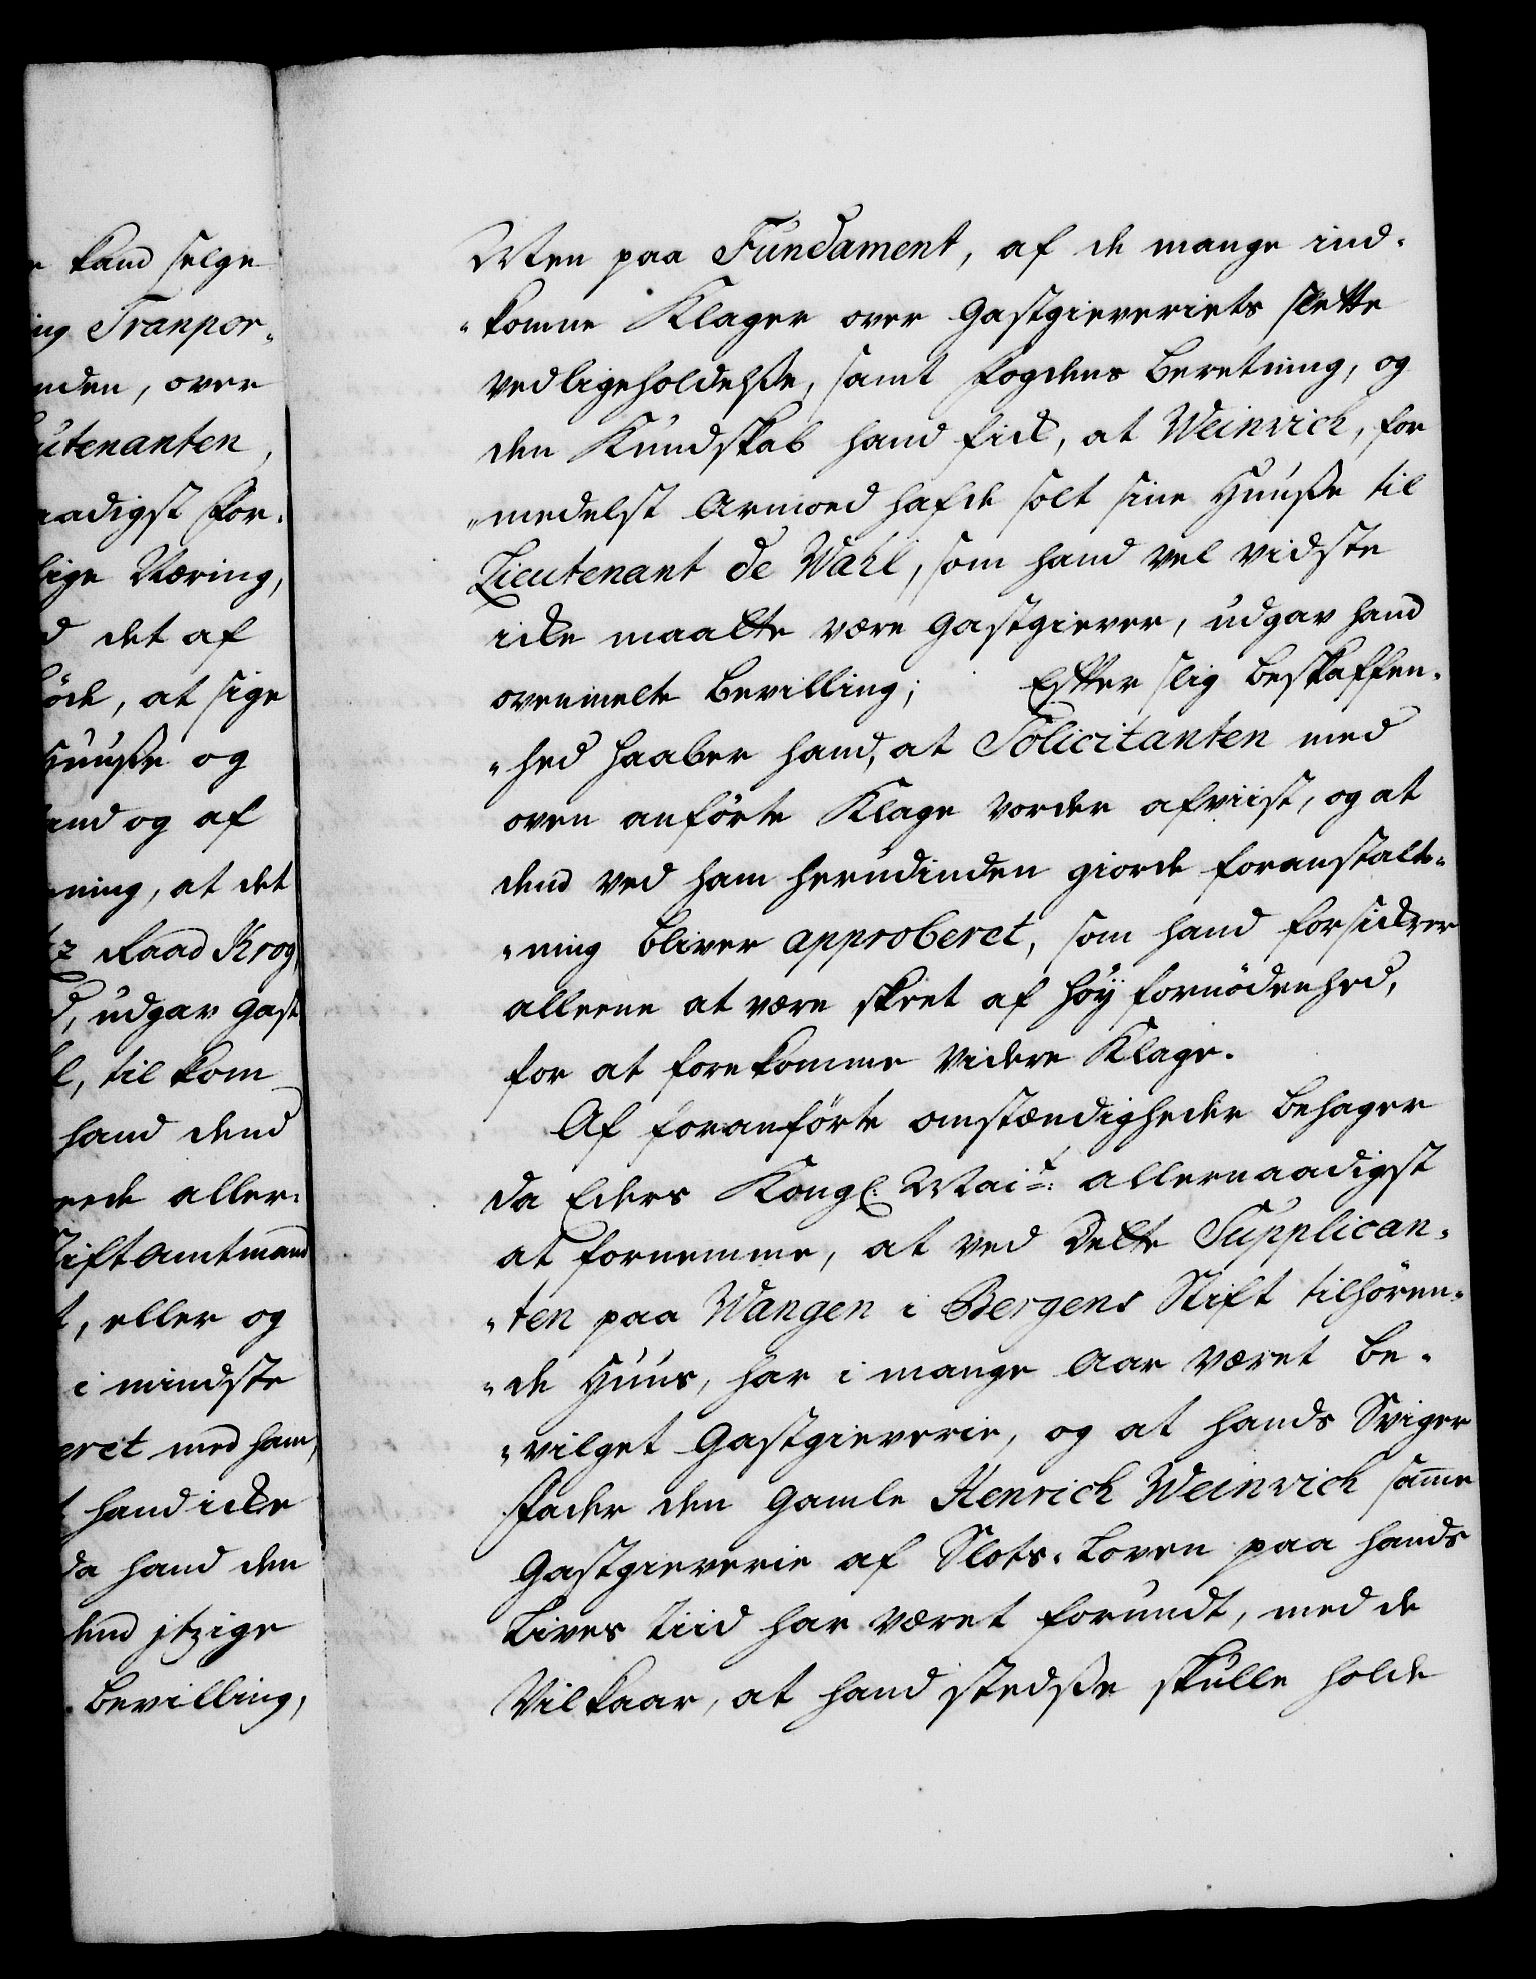 e kand selge
ing Tranpor„
nden, over
utenanten,
aadigst for„
lige Næring,
d det af
öde, at sige
Huusße og
and og af
ning, at det
tz Raad Krog
d, udgav gast
l, til kom
hand dend
rede aller„
Stiftamtmand
t, eller og
i mindste
eret med ham,
t hand icke
da hand den
dend itzige
bevilling,
Men paa Fundament, af de mange ind„
„komne Klager over gastgieveriets slette
vedligeholdelße, samt fogdens beretning, og
den Kundskab hand fick, at Weinrich, for
„medelst armoed hafde solt sine Huuße til
Lieutenant de Wahl, som hand vel vidste
icke maatte være gastgiever, udgav hand
ovenmelte bevilling; Efter slig beskaffen„
„hed haaber hand, at Solicitanten med
oven anförte Klage vorder afviist, og at
dend ved ham herudinden giorde foranstalt„
„ning bliver approberet, som hand forsickrer
alleene at være skeet af höy fornödenhed,
for at forekomme videre Klage.
Af foranförte omstændigheder behager
da Eders Kongl: Maitt: allernaadigst
at fornemme, at ved dette Supplican„
„ten paa Wangen i Bergens Stift tilhören„
„de Huus, har i mange aar været be„
„vilget gastgieverie, og at hands Sviger
fader den gamle Henrich Weinrich samme
Gastgieverie af Slots-Loven paa hands
Lives tiid har været forundt, med de
Vilkaar, at hand stedsße skulle holde